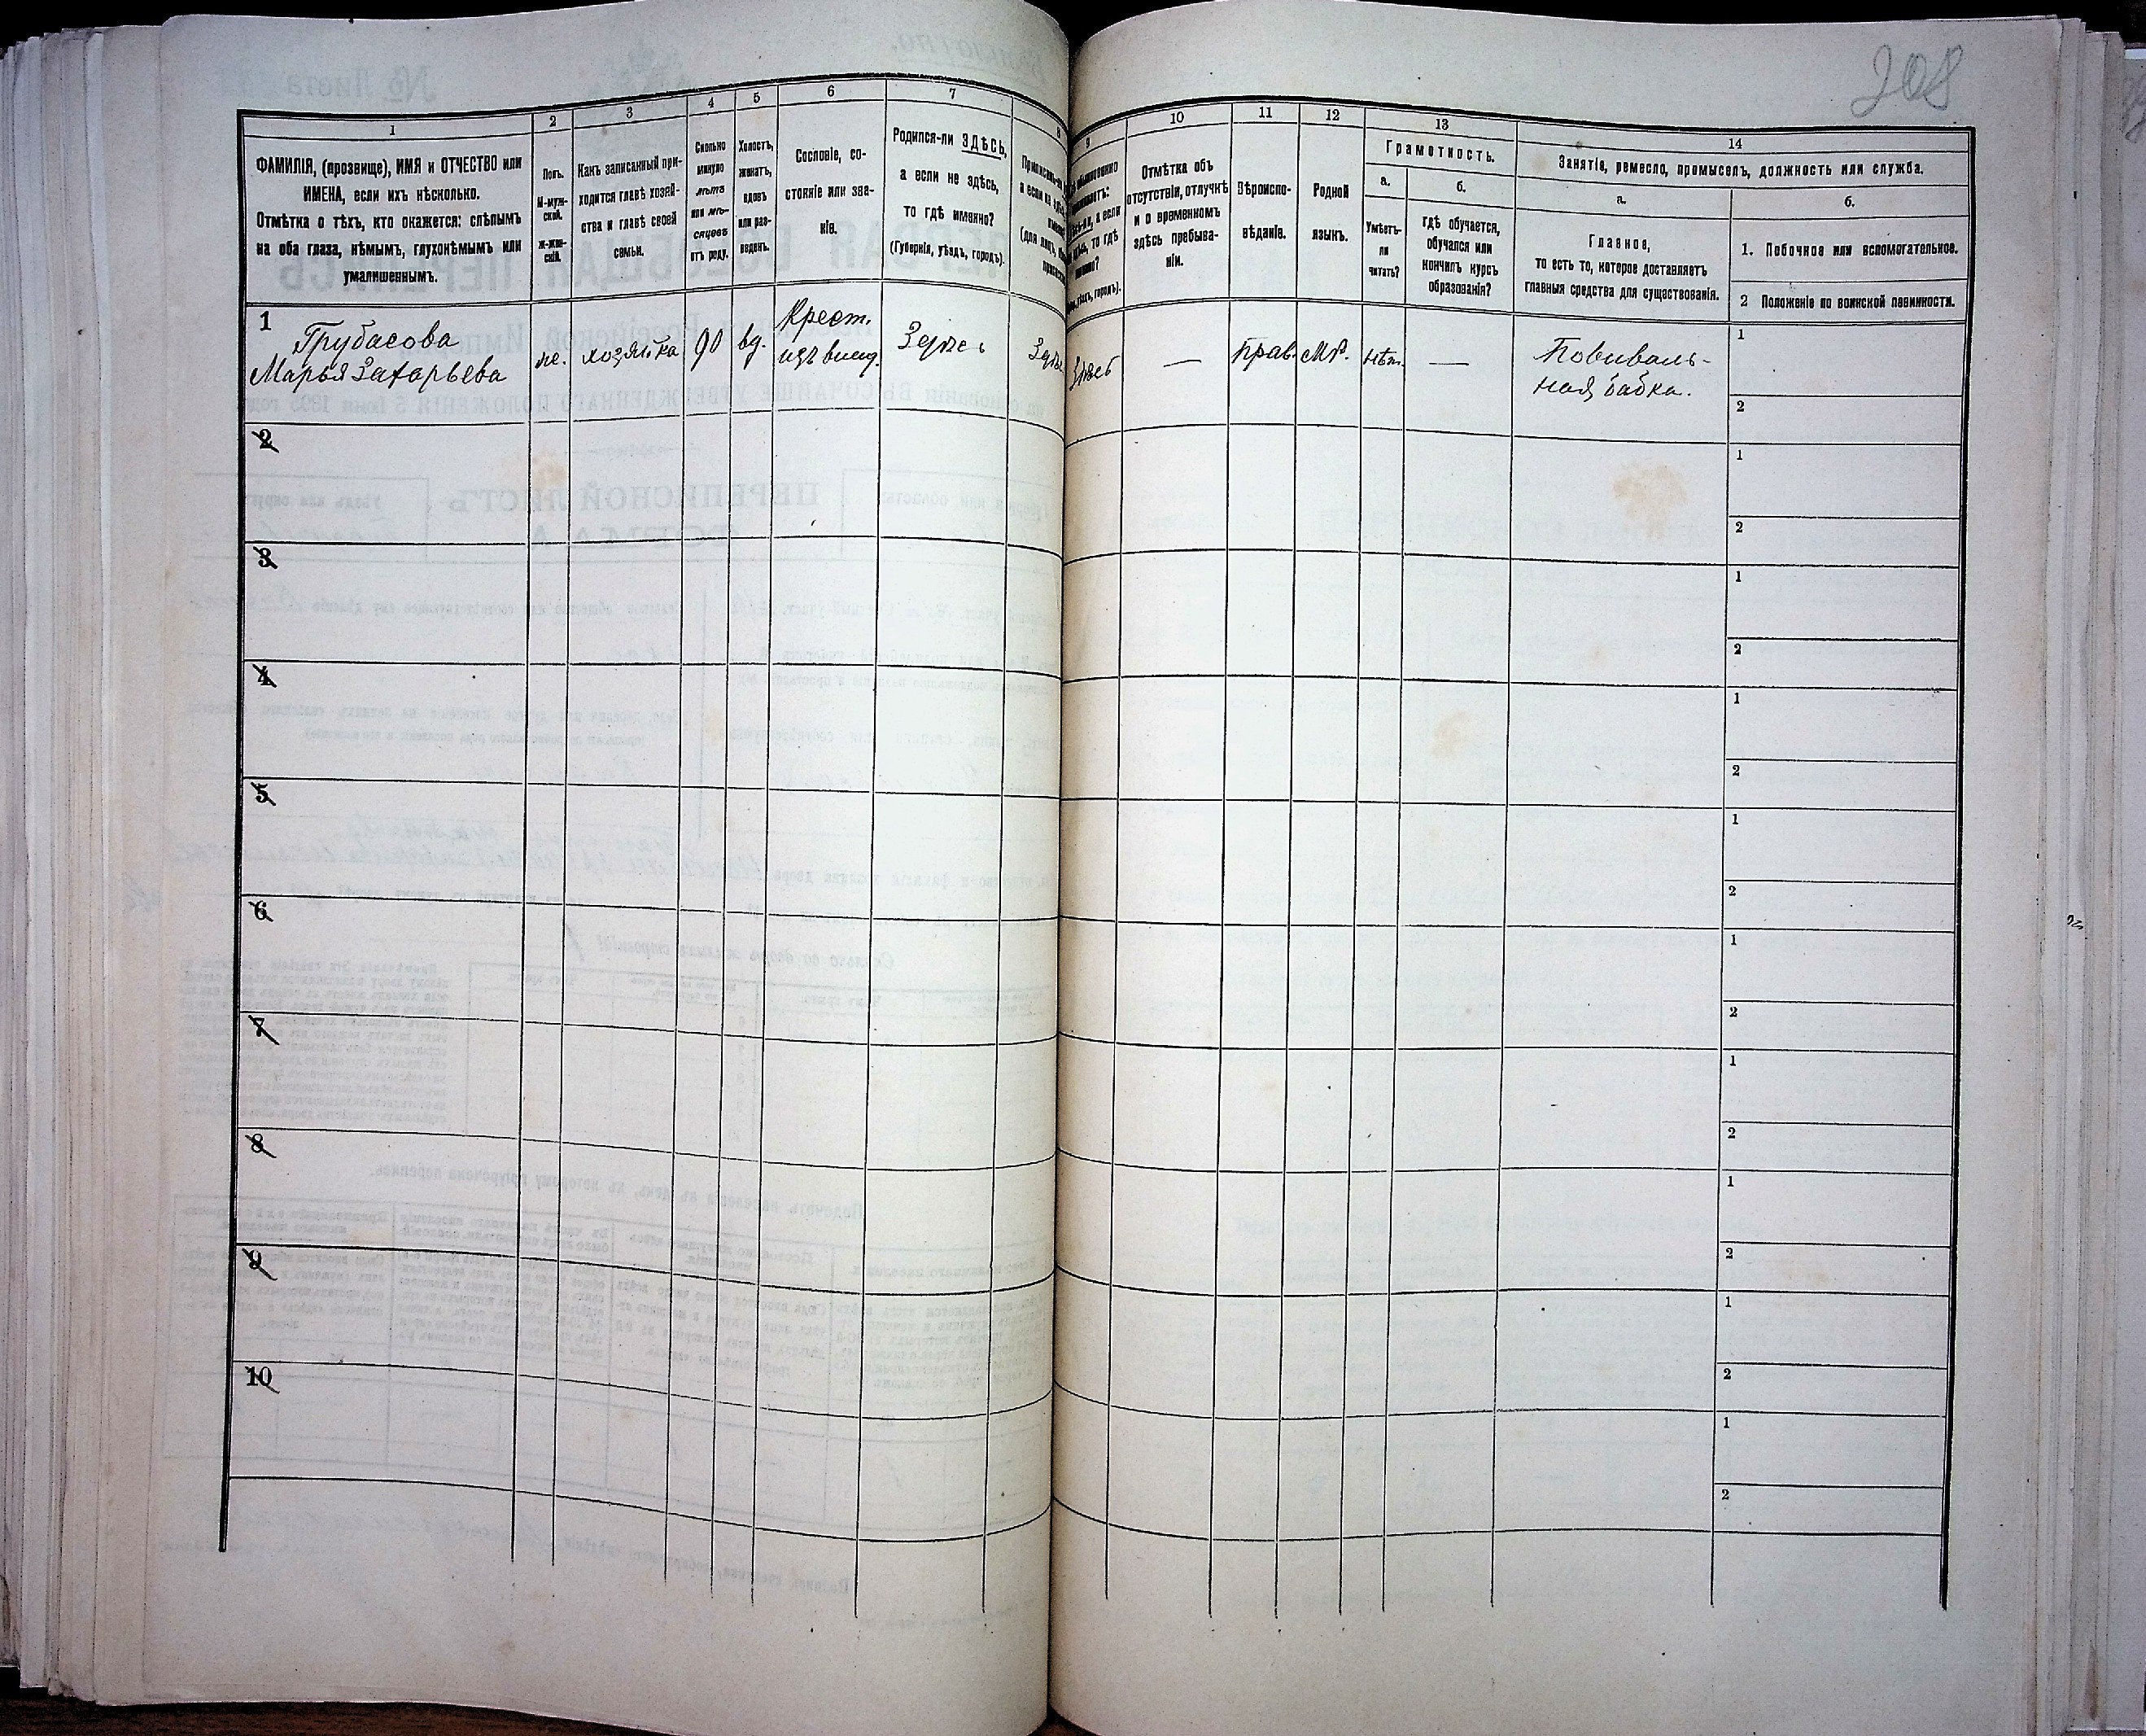 208
1
ФАМИЛІЯ, (прозвище), ИМЯ и ОТЧЕСТВО или
ИМЕНА, если ихъ нѣсколько.
Отмѣтка о тѣхъ, кто окажется: слѣпымъ
на оба глаза, нѣмымъ, глухонѣмымъ или
умалишеннымъ.
2
Полъ.
М-муж-
ской.
Ж-жен-
скій.
3
Какъ записанный при-
ходится главѣ хозяй-
ства и главѣ своей
семьи.
4
Сколько
минуло
лѣтъ
или мѣ-
сяцевъ
отъ роду.
5
Холостъ,
женатъ,
вдовъ
или раз-
веденъ.
6
Сословіе, со-
стояніе или зва-
ніе.
7
Родился-ли ЗДѢСЬ,
а если не здѣсь,
то гдѣ именно?
(Губернія, уѣздъ, городъ).
8
9
10
Отмѣтка объ
отсутствіи, отлучкѣ
и о временномъ
здѣсь пребыва-
ніи.
11
Вѣроиспо-
вѣданіе.
12
Родной
языкъ.
13
Грамотность.
а.
Умѣетъ-
ли
читать?
б.
гдѣ обучается,
обучался или
кончилъ курсъ
образованія?
14
Занятіе, ремесло, промыселъ, должность или служба.
а.
Главное,
то есть то, которое доставляетъ
главныя средства для существованія.
б.
1. Побочное или вспомогательное.
2 Положеніе по воинской повинности.
1
Грубасова
Марья Захарьева
же.
хозяйка
90
вд.
Крест.
изъ влад.
Здѣсь
Здѣсь
Здѣсь
—
Прав.
МР.
нѣт.
—
Повиваль-
ная бабка.
1
2
2
1
2
3
1
2
4
1
2
5
1
2
6
1
2
7
1
2
8
1
2
9
1
2
10
1
2